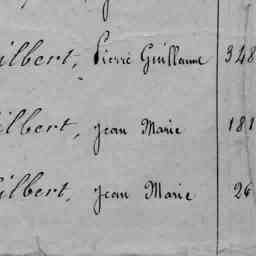 ilbert, Pierre Guillaume 348
ilbert, Jean Marie 181
ilbert, Jean Marie 26